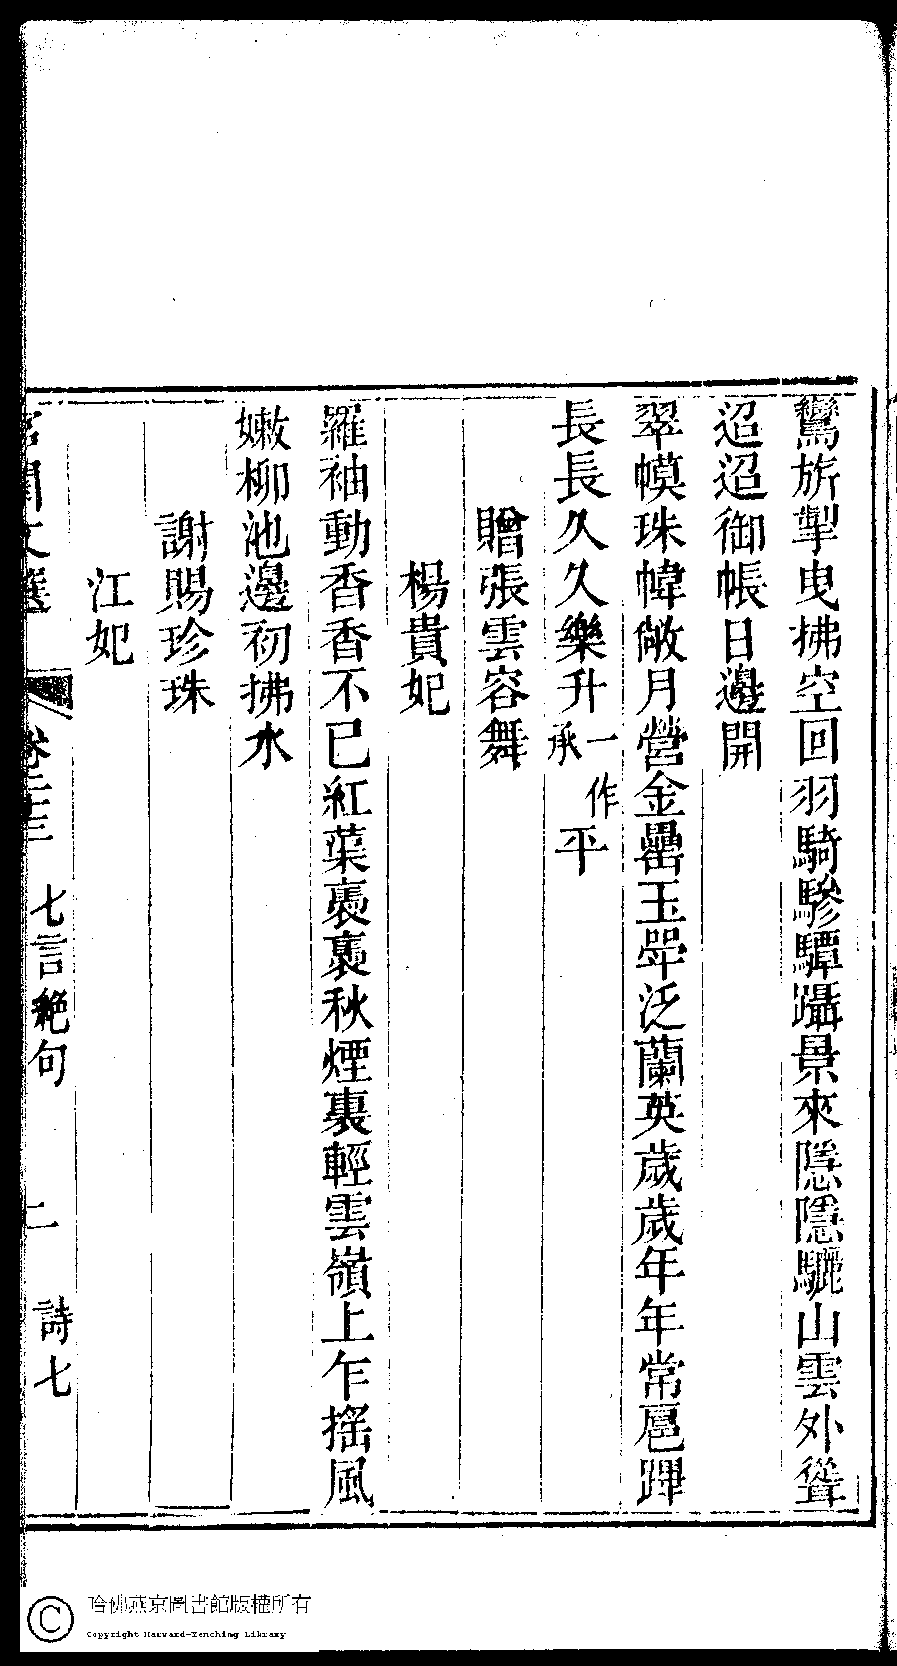 鸞旂掣曳拂空回羽騎驂驔躡景來隱隱驪山雲外聳
迢迢御帳日邊開
翠幙珠幃敞月營金罍玉斝泛蘭英歲歲年年常扈蹕
長長久久樂升一作承平
贈張雲容舞
楊貴妃
羅袖動香香不已紅蕖裊裊秋煙裏輕雲嶺上乍搖風
嫩柳池邊初拂水
謝賜珍珠
江妃
名閨文選 卷二十三 七言絕句 二 詩七
哈佛燕京圖書館版權所有
Copyright Harvard-Yenching Library